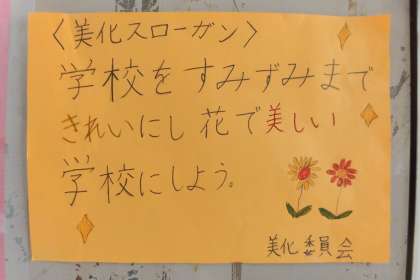 〈美化スローガン〉
学校をすみずみまで
きれいにし花で美しい
学校にしよう。
美化委員会